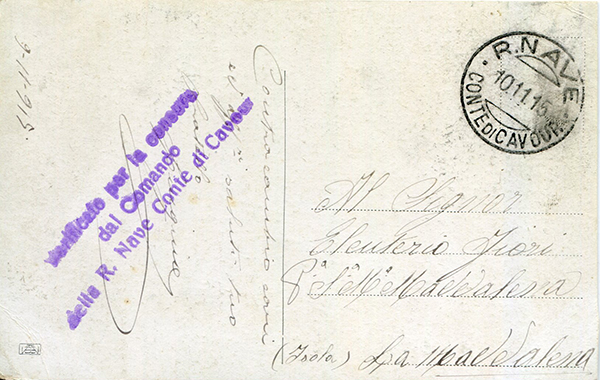 9-11-915
Contracambio cari
saluti tuo
Verificato per la censura
dal Comando
della R. Nave Conte di Cavour
R. NAVE
10.11.15
CONTE DI CAVOUR
Al Signor
Eleuterio Fiori
Maddalena
(Isola) La Maddalena